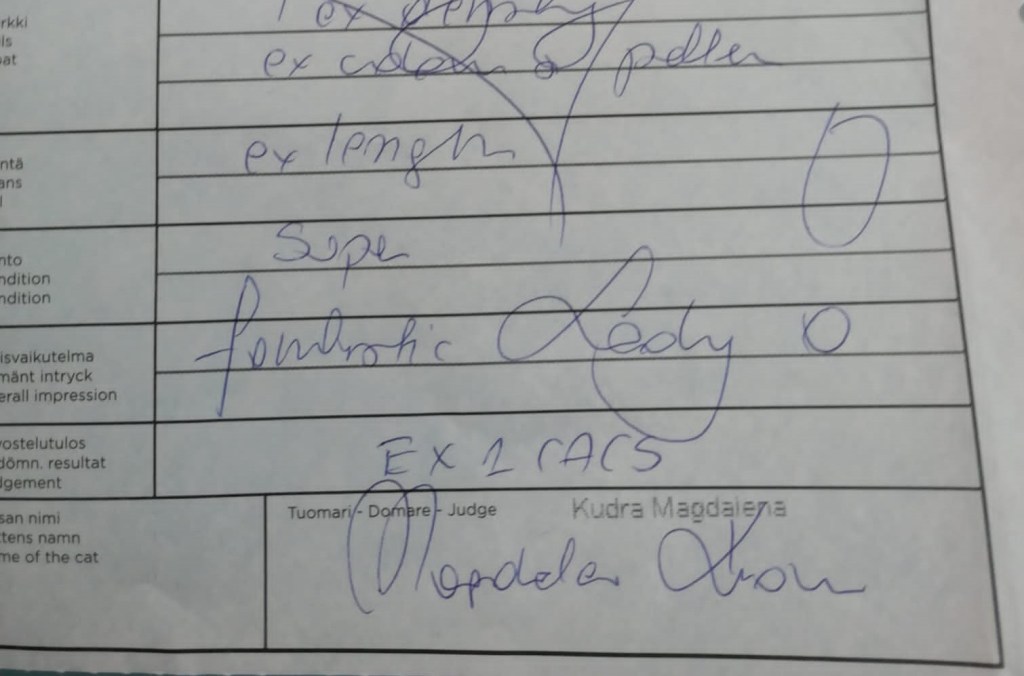 rkki
is
at
ex density
ex colour & pattern
ntä
ans
l
ex length
nto
ndition
ndition
Super
isvaikutelma
mänt intryck
erall impression
fantastic Lady
ostelutulos
dömn. resultat
dgement
EX 1 CACS
san nimi
tens namn
me of the cat
Tuomari - Domare - Judge
Kudra Magdalena
Magdalena